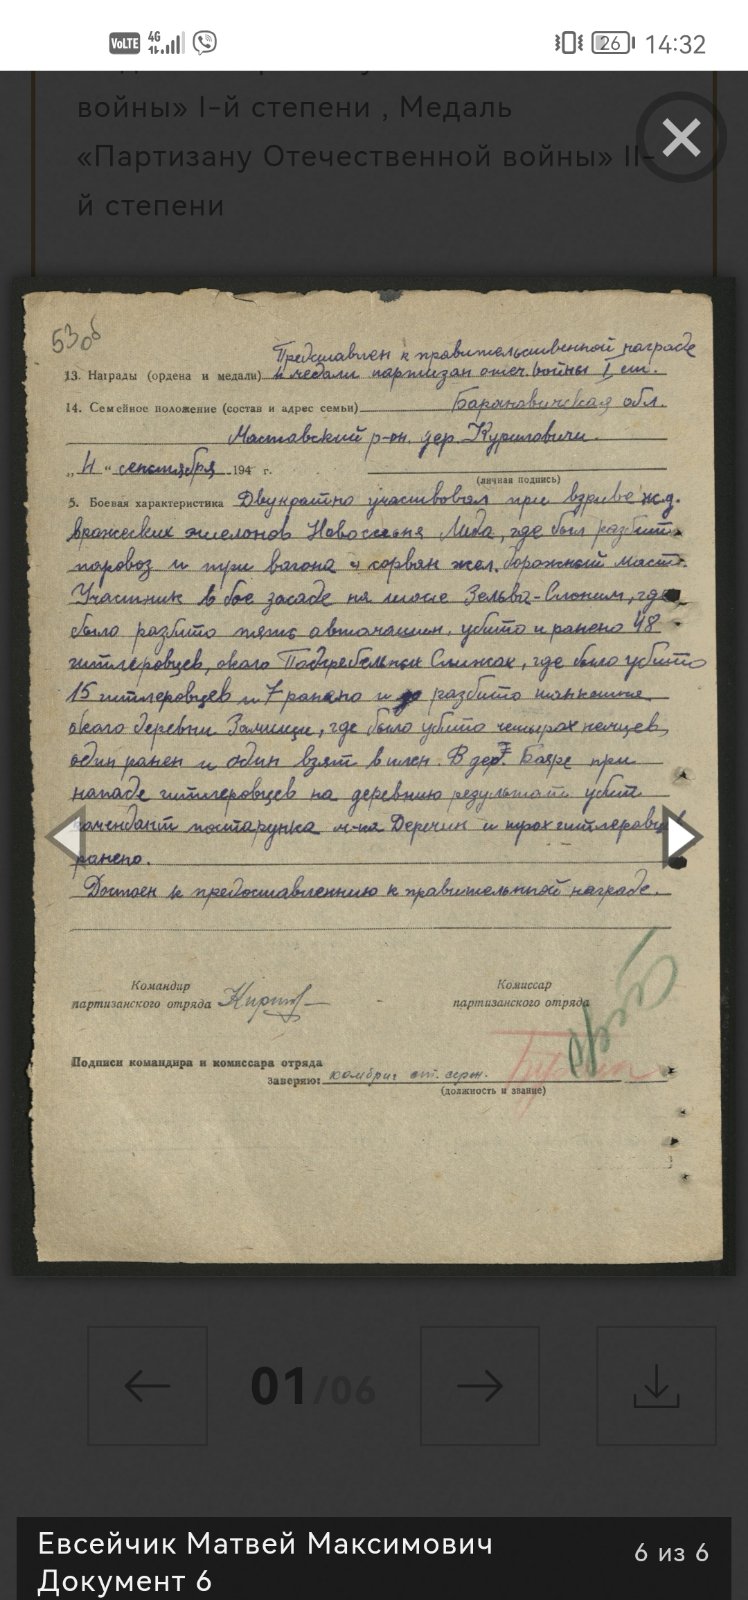 VoLTE 4G 26 14:32
войны» I-й степени , Медаль
«Партизану Отечественной войны» II-
й степени
530б
Представлен к правительственной награде
13. Награды (ордена и медали) к медали партизан отеч. войны I ст.
14. Семейное положение (состав и адрес семьи) Барановичская обл.
Маставский р-он. дер. Куриловичи.
„ 4 “ сентября 194 г.
(личная подпись)
5. Боевая характеристика Двукратно участвовал при взриве ж.д.
вражеских эшелонов Новоельня Лида, где был разбит
паровоз и три вагона и сорван жел. дорожный мост.
Участник в бое засаде на шосе Зельва-Слоним, где
было разбито пять автомашин, убито и ранено 48
гитлеровцев, около, где было убито
15 гитлеровцев и 7 ранено и разбито
около деревни Замищи, где было убито чецырох немцев,
один ранен и один взят в плен. В дер. Бояре при
нападе гитлеровцев на деревню результате убит
комендант м-ка Деречин и трох гитлеровц
ранено.
Достоен к предоставленнию к правительной награде.
Командир
партизанского отряда
Комиссар
партизанского отряда
Подписи командира и комиссара отряда
заверяю: комбриг ст. серж.
(должность и звание)
01/06
Евсейчик Матвей Максимович
6 из 6
Документ 6